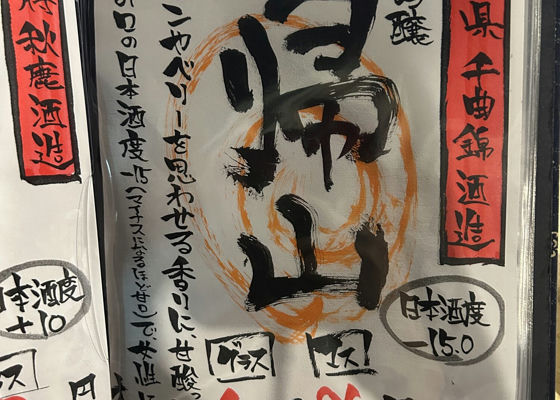 県 千曲錦酒造
吟醸
帰山
ンやベリーを思わせる香りに甘酸っ
口の日本酒度-15(マイナス
ほど甘口)で、女性に
日本酒度
-15.0
グラス
マス
秋鹿酒造
日本酒度
+10
ス
円